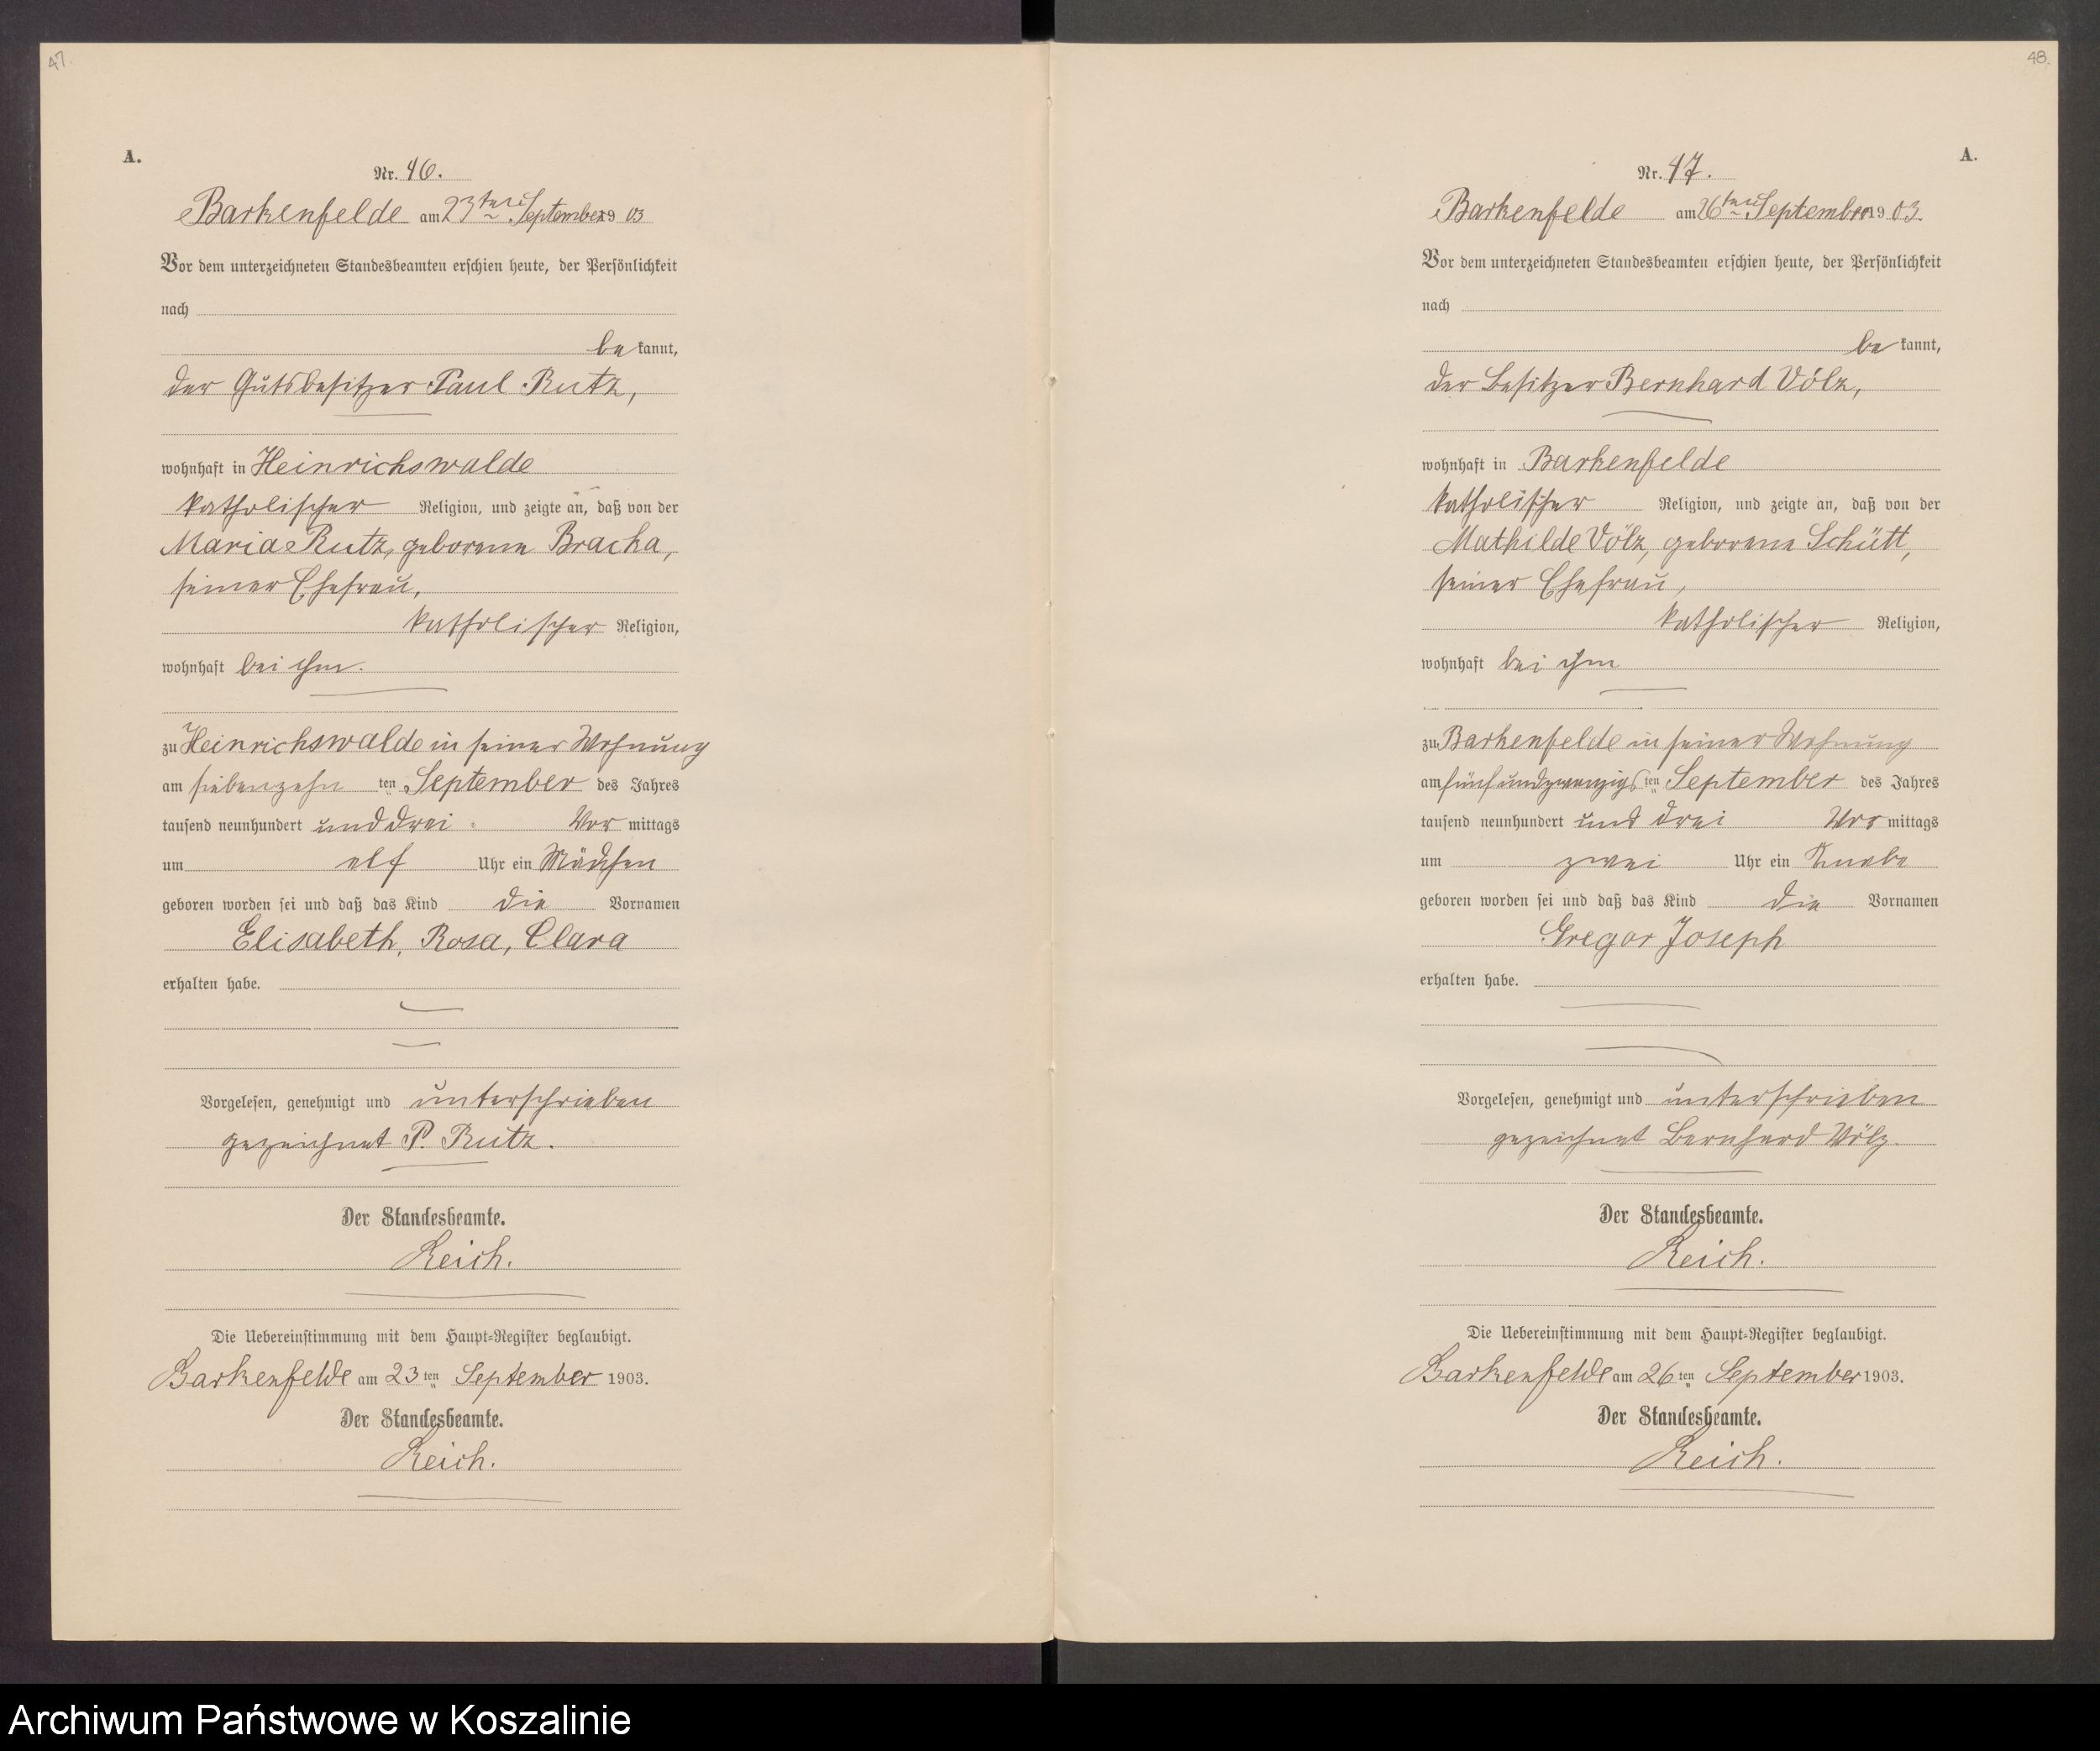 47.
A.
Nr. 46.
Barkenfelde am 23ten September 1903
Vor dem unterzeichneten Standesbeamten erschien heute, der Persönlichkeit
nach
be kannt,
der Gutsbesitzer Paul Rutz,
wohnhaft in Heinrichswalde
katholischer Religion, und zeigte an, daß von der
Maria Rutz, geborene Bracka,
seiner Ehefrau,
katholischer Religion,
wohnhaft bei ihm.
zu Heinrichswalde in seiner Wohnung
am siebenzehn ten September des Jahres
tausend neunhundert und drei Vor mittags
um elf Uhr ein Mädchen
geboren worden sei und daß das Kind die Vornamen
Elisabeth, Rosa, Clara
erhalten habe.
Vorgelesen, genehmigt und unterschrieben
gezeichnet P. Rutz.
Der Standesbeamte.
Reich.
Die Uebereinstimmung mit dem Haupt-Register beglaubigt.
Barkenfelde am 23 ten September 1903.
Der Standesbeamte.
Reich.
48.
A.
Nr. 47.
Barkenfelde am 26ten September 1903.
Vor dem unterzeichneten Standesbeamten erschien heute, der Persönlichkeit
nach
be kannt,
der Besitzer Bernhard Völz,
wohnhaft in Barkenfelde
katholischer Religion, und zeigte an, daß von der
Mathilde Völz, geborene Schütt,
seiner Ehefrau,
katholischer Religion,
wohnhaft bei ihm
zu Barkenfelde in seiner Wohnung
am fünfundzwanzigs ten September des Jahres
tausend neunhundert und drei Vor mittags
um zwei Uhr ein Knabe
geboren worden sei und daß das Kind die Vornamen
Gregor Joseph
erhalten habe.
Vorgelesen, genehmigt und unterschrieben
gezeichnet Bernhard Völz.
Der Standesbeamte.
Reich.
Die Uebereinstimmung mit dem Haupt-Register beglaubigt.
Barkenfelde am 26 ten September 1903.
Der Standesbeamte.
Reich.
Archiwum Państwowe w Koszalinie